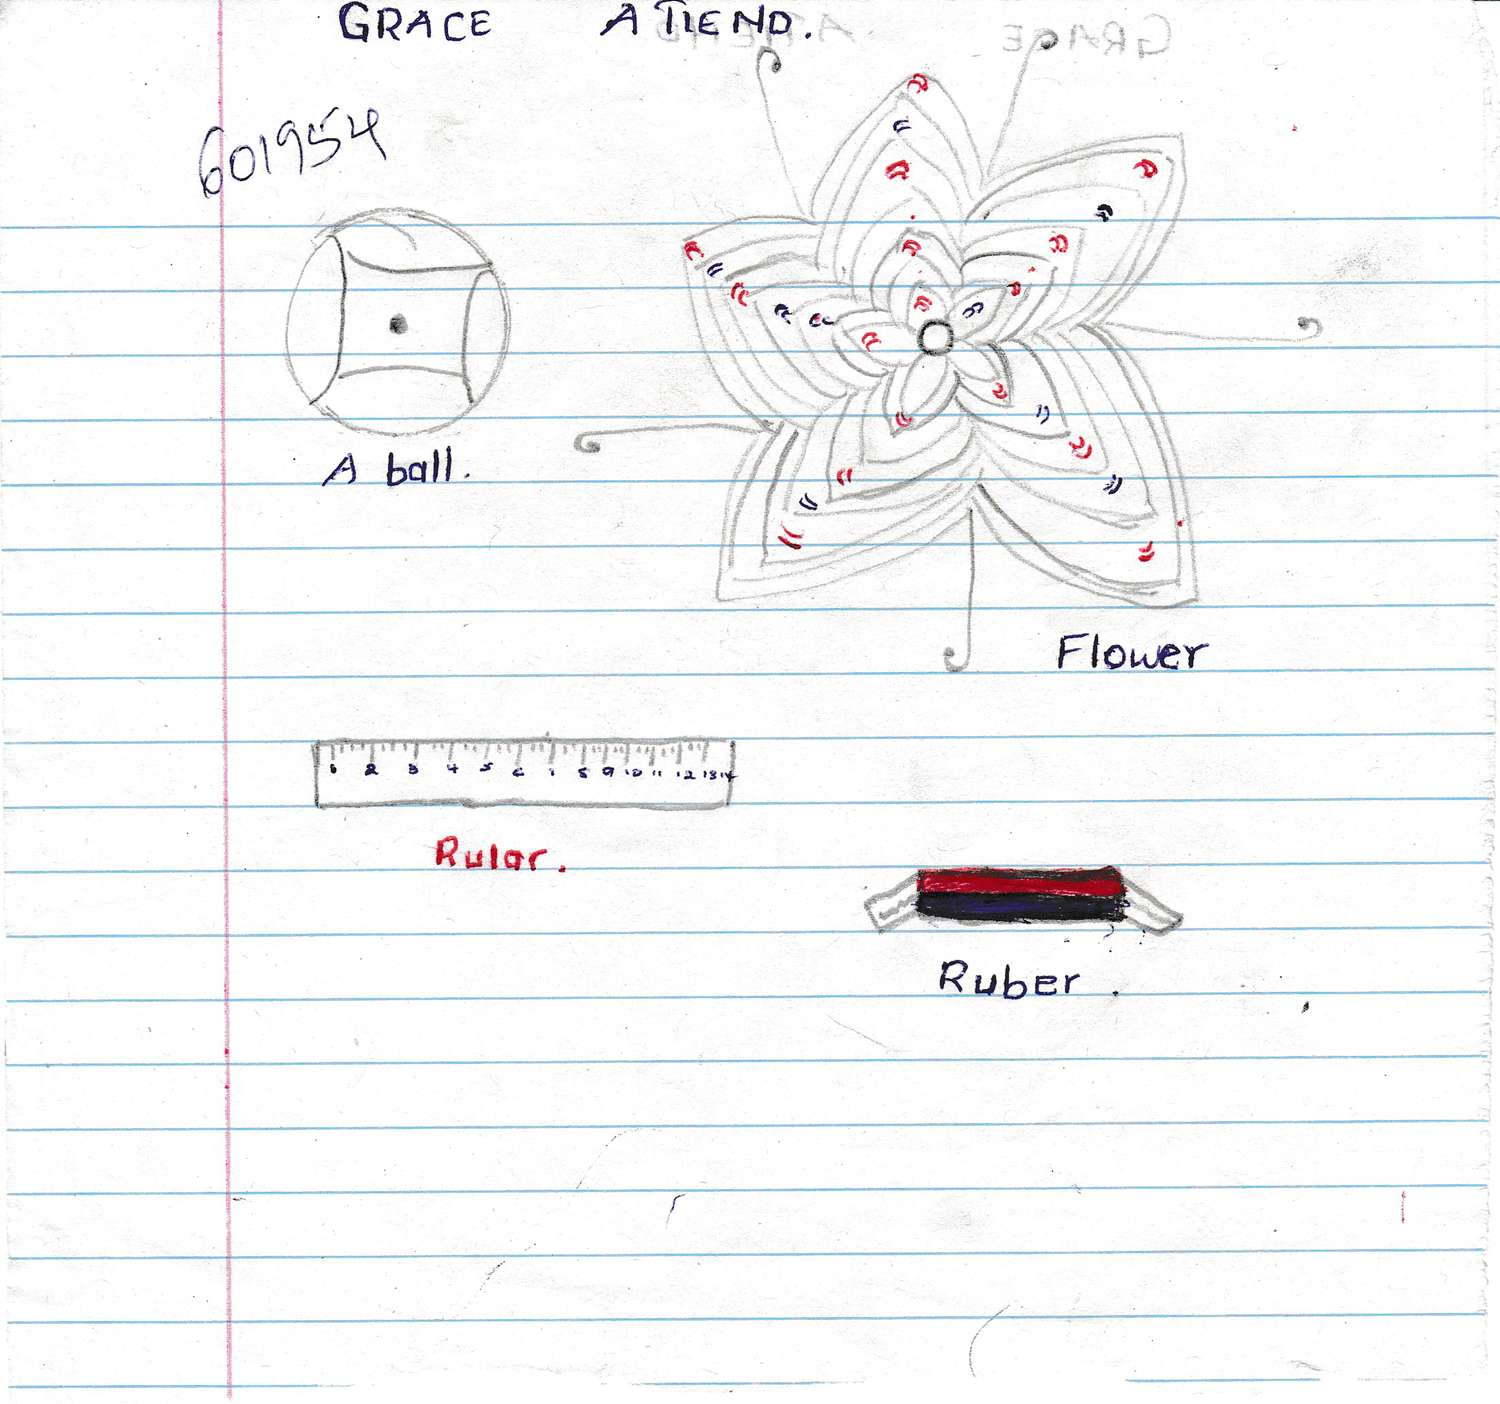 GRACE ATIEND.
601954
A ball.
Flower
1 2 3 4 5 6 7 8 9 10 11 12 13 14
Rular.
Ruber.